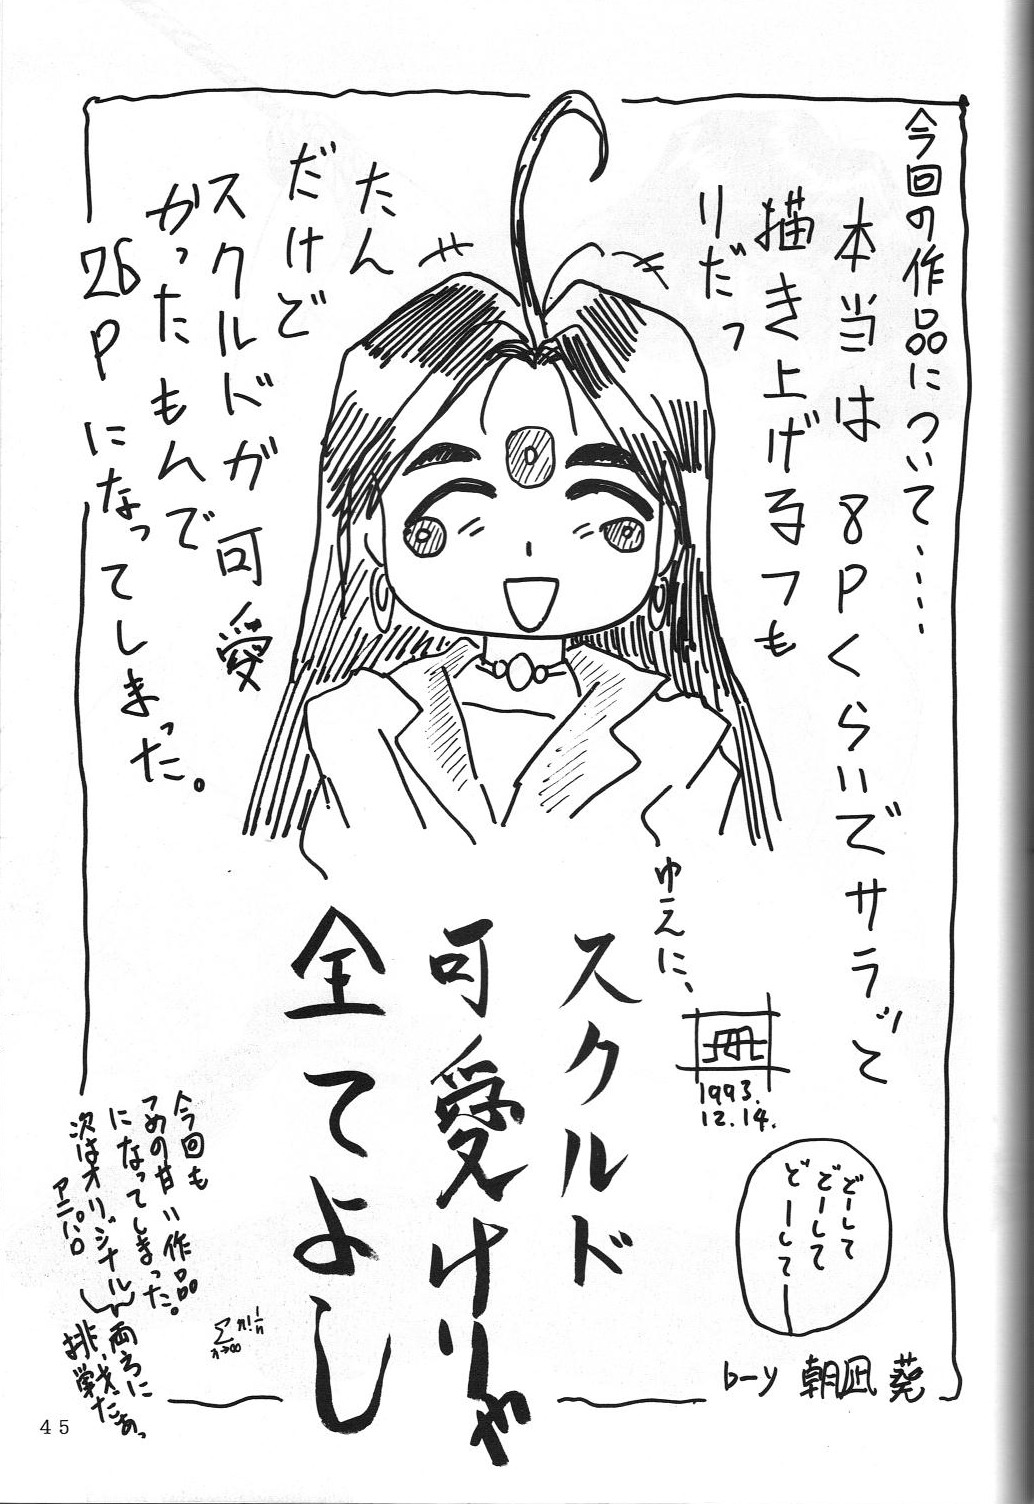 今回の作品について‥‥‥
本当は8Pくらいでサラッと
描き上げるつも
りだっ
たん
だけど
スクルドが可愛
かったもんで
26Pになってしまった。
ゆえに、
スクルド
可愛けりゃ
全てよし
冊
1993.
12.14.
どーして
どーして
どーして
by 朝凪 葵
今回も
つめの甘い作品
になってしまった。
次はオリジナル
アニパロ
両方に
挑戦だぁっ
Σ n! 1/n
n→∞
45